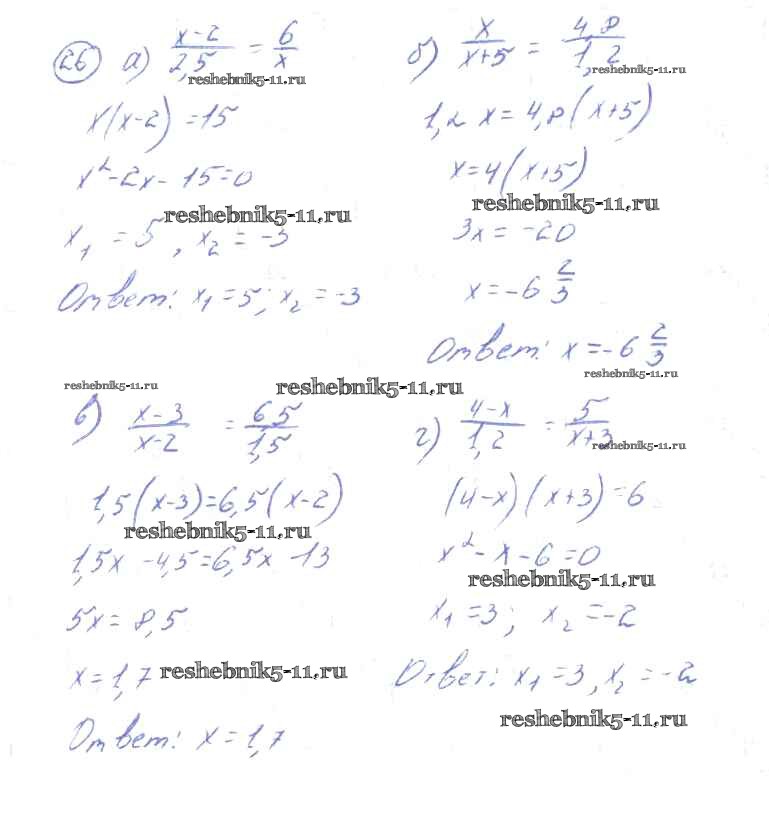 26 а) x-2/2,5 = 6/x
reshebnik5-11.ru
x(x-2) = 15
x²-2x-15=0
reshebnik5-11.ru
x₁ = 5, x₂ = -3
Ответ: x₁ = 5; x₂ = -3
б) x/x+5 = 4,8/1,2
reshebnik5-11.ru
1,2 x = 4,8(x+5)
x=4(x+5)
reshebnik5-11.ru
3x = -20
x = -6 2/3
Ответ: x = -6 2/3
reshebnik5-11.ru
reshebnik5-11.ru
reshebnik5-11.ru
в) x-3/x-2 = 6,5/1,5
1,5(x-3)=6,5(x-2)
reshebnik5-11.ru
1,5x -4,5=6,5x -13
5x = 8,5
x=1,7
reshebnik5-11.ru
Ответ: x = 1,7
г) 4-x/1,2 = 5/x+3
reshebnik5-11.ru
(4-x)(x+3)=6
x²-x-6=0
reshebnik5-11.ru
x₁ = 3; x₂ = -2
Ответ: x₁ = 3, x₂ = -2
reshebnik5-11.ru